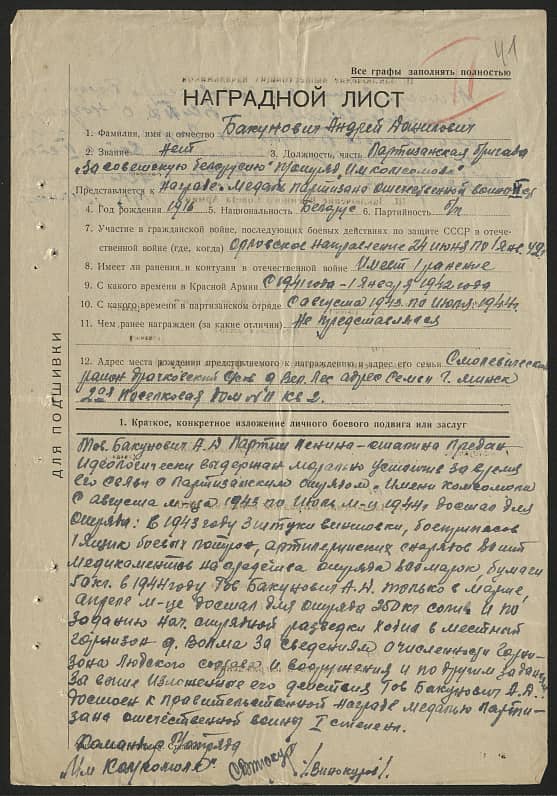 41
Все графы заполнять полностью
НАГРАДНОЙ ЛИСТ
1. Фамилия, имя и отчество Бакунович Андрей Данилович
2. Звание Нет 3. Должность, часть Партизанская бригада
"За советскую белоруссию"
Представляется к Награде медаль Партизано отечественной войны II ст
4. Год рождения 1916 5. Национальность Беларус 6. Партийность б/п
7. Участие в гражданской войне, последующих боевых действиях по защите СССР и отече-
ственной войне (где, когда) Орловское направление 24 июня по 1 янв 42г
8. Имеет ли ранения и контузии в отечественной войне Имеет 1 ранение
9. С какого времени в Красной Армии С 1941 года - 1 Января 1942 года
10. С какого времени в партизанском отряде С августа 1943 по Июль 1944г
11. Чем ранее награжден (за какие отличия) Не представлялся
12. Адрес места рождения представляемого к награждению и адрес его семьи Смолевический
район Драчковский с/сов д. Вел. Лес адрес Семьи г. Минск
2ая Поселковая дом №11 кв 2.
ДЛЯ ПОДШИВКИ
1. Краткое, конкретное изложение личного боевого подвига или заслуг
Тов. Бакунович А.Д Партии Ленина-сталина Предан.
Идеологически выдержан морально устойчив за время
его связи с Партизанским отрядом Имени комсомола
С августа м-ца 1943 по Июль м-ц 1944г достал для
отряда: в 1943 году 3 штуки винтовки, боеприпасов
1 ящик боевых патрон, артилерийских снарядов 80 шт
медикаментов на средства отряда 600 марок, бумаги
50 кг. в 1944 году Тов Бакунович А.Д. только в марте,
апреле м-це достал для отряда 250 кг соли и по
заданию нач. отрядной разведки ходил в местный
гарнизон д. Волма за сведениям о численности гарни-
зона людского состава и вооружения и по другим заданиям
За выше изложенные его действия Тов Бакунович А.Д.
достоен к правительственной награде медалью Парти-
зана отечественной войны II степени.
Командир отряда
"Им Комсомола" /Винокуров/.